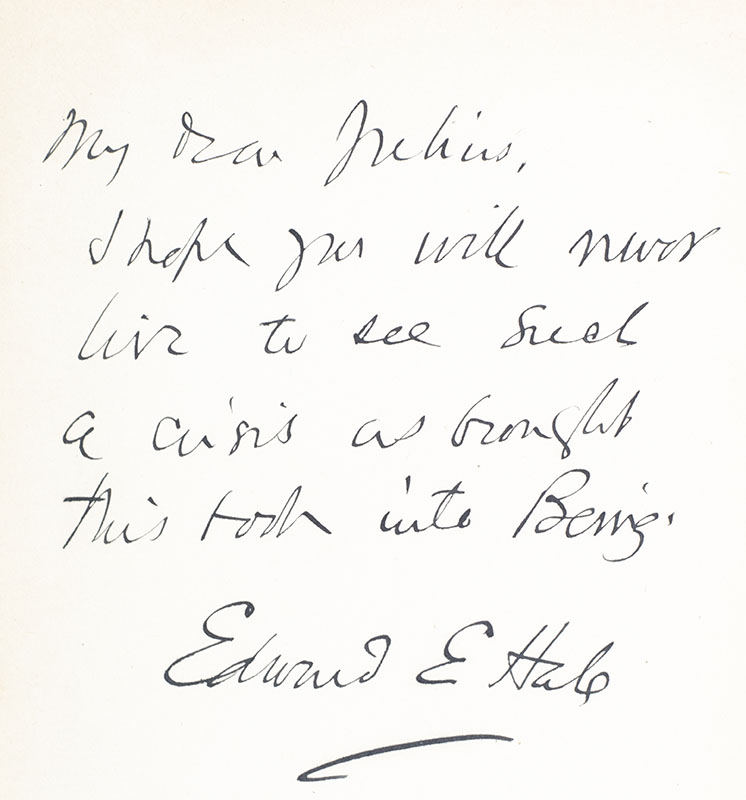 My dear Julius,
I hope you will never
live to see such
a crisis as brought
this book into Being.
Edward E Hale